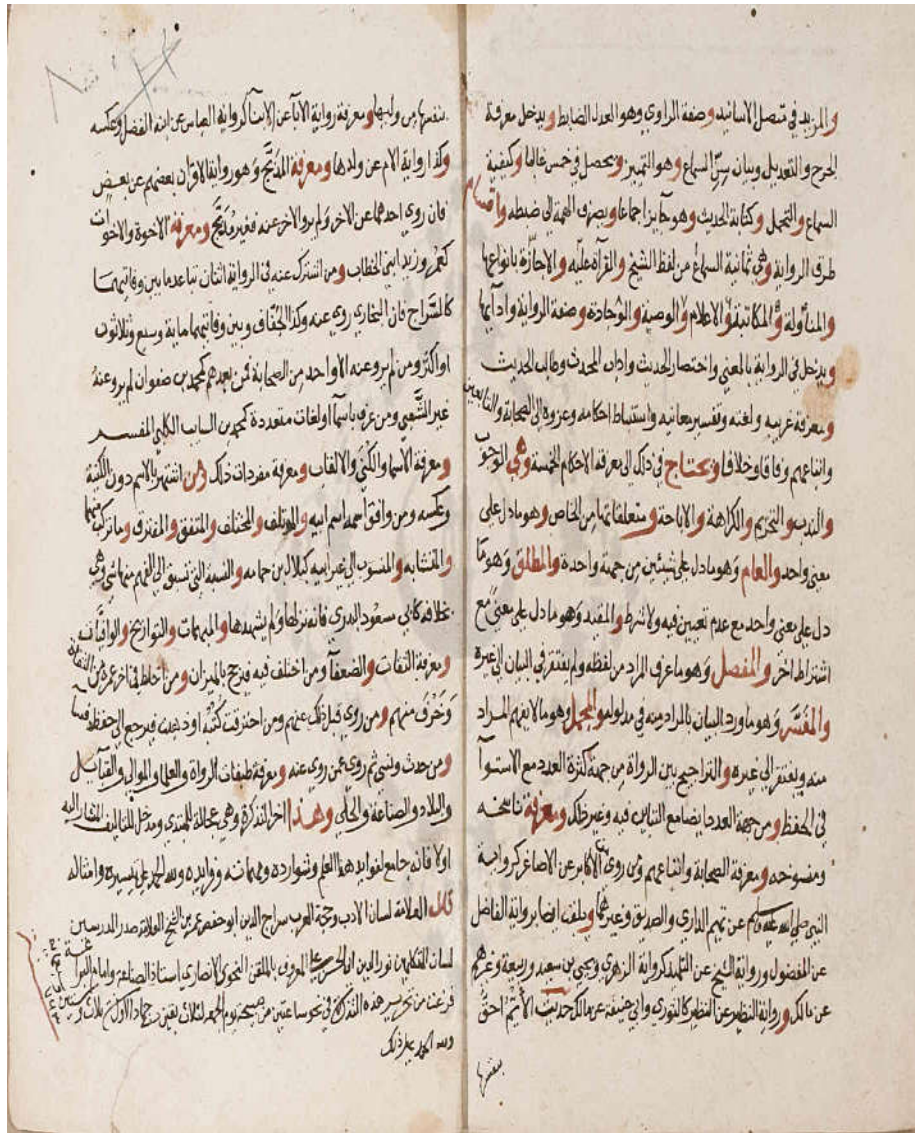 والمزيد في متصل الاسانيد وصفة الراوي وهو العدل الضابط ويدخل معرفة
الجرح والتعديل وبيان سن السماع وهو التمييز ويحصل في خمس غالبا وكيفية
السماع والتحمل وكتابة الحديث وهو جايز اجماعا ويصرف الهمة الى ضبطه واقسام
طرق الرواية وهي ثمانية السماع من لفظ الشيخ والقراة عليه والاجازة بانواعها
والمناولة والمكاتبة والاعلام والوصية والوجادة وصفة الرواية وادايها
ويدخل في الرواية بالمعنى واختصار الحديث واداب المحدث وطالب الحديث
ومعرفة غريبه ولغته وتفسير معانيه واستنباط احكامه وعزوه الى الصحابة والتابعين
واتباعهم وفاقا وخلافا ويحتاج في ذلك الى معرفة الاحكام الخمسة وهي الوجوب
والندب والتحريم والكراهة والاباحة ومتعلقاتها من الخاص وهو ما دل على
معنى واحد والعام وهو ما دل على شيئين من جهة واحدة والمطلق وهو ما
دل على معنى واحد مع عدم تعيين فيه ولا شرط والمقيد وهو ما دل على معنى مع
اشتراط اخر والمفصل وهو ما عرف المراد من لفظه ولم يفتقر في البيان الى غيره
والمفسر وهو ما ورد البيان بالمراد منه في مدلوله والمجمل وهو ما لا يفهم المراد
منه ويفتقر الى غيره والتراجيح بين الرواة من جهة كثرة العدد مع الاستوآ
في الحفظ ومن جهة العدد ايضا مع التباين فيه وغير ذلك ومعرفة ناسخه
ومنسوخه ومعرفة الصحابة واتباعهم ومن روى من الاكابر عن الاصاغر كرواية
النبي صلى الله عليه وسلم عن تميم الداري والصديق وغيرهما ويلقب ايضا برواية الفاضل
عن المفضول ورواية الشيخ عن التلميذ كرواية الزهري ويحيى بن سعيد وربيعة وغيرهم
عن مالك ورواية النظير عن النظير كالثوري وابي حنيفة عن مالك حديث الايم احق
بنفسها
بنفسها من وليها ومعرفة رواية الابآ عن الابنآ كرواية العباس عن ابنه الفضل وعكسه
وكذا رواية الام عن ولدها ومعرفة المدبج وهو رواية الاقران بعضهم عن بعض
فان روى احدهما عن الاخر ولم يرو الاخر عنه فغير مدبج ومعرفة الاخوة والاخوات
كعمر وزيد ابني الخطاب ومن اشترك عنه في الرواية اثنان تباعد ما بين وفاتيهما
كالسراج فان البخاري روى عنه وكذا الخفاف وبين وفاتيهما ماية وسبع وثلاثون
او اكثر ومن لم يرو عنه الا واحد من الصحابة فمن بعدهم كمحمد بن صفوان لم يرو عنه
غير الشعبي ومن عرف باسمآ او نعات متعددة كمحمد بن السايب الكلبي المفسر
ومعرفة الاسما والكنى والالقاب ومعرفة مفردات ذلك ومن اشتهر بالاسم دون الكنية
وعكسه ومن وافق اسمه اسم ابيه والموتلف والمختلف والمتفق والمفترق وما تركب منهما
والمتشابه والمنسوب الى غير ابيه كبلال بن حمامة والنسبة التي تسبق الى الفهم منها شي وهي
بخلافه كابي مسعود البدري فانه نزلها ولم يشهدها والمبهمات والتواريخ والوفيات
ومعرفة الثقات والضعفآ ومن اختلف فيه فيرجح بالميزان ومن اختلط في اخر عمره من الثقات
وخرف منهم ومن روى قبل ذلك عنهم ومن احترقت كتبه او ذهبت فرجع الى حفظه فسآ
ومن حدث ونسي ثم روى عمن روى عنه ومعرفة طبقات الرواة والعلما والموالي والقبايل
والبلاد والصناعة والحلى وهذا اخر التذكرة وهي عجالة للمبتدي ومدخل للتاليف المشار اليه
اولا فانه جامع لفوايد هذا العلم وشوارده ومهماته وفرايده ولله الحمد على تيسيره وامثاله
قال العلامة لسان الادب وحجة العرب سراج الدين ابو حفص عمر بن الشيخ العلامة صدر المدرسين
لسان المتكلمين نور الدين ابي الحسن علي المعروف بالملقن النحوي الانصاري استاذ الصناعة وامام
فرغت من تحرير هذه التذكرة في نحو ساعتين من صبيحة يوم الجمعه لثلاث بقين من جماد الاول ثلاث وستين
ولله الحمد على ذلك